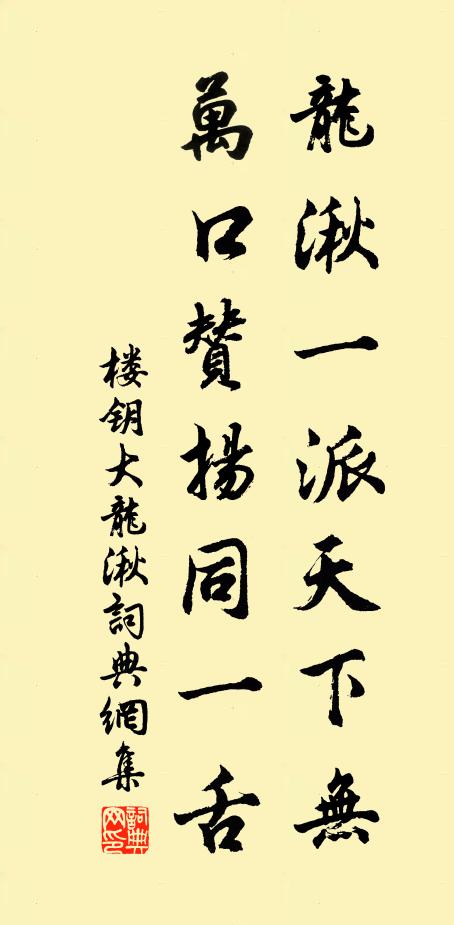 龍湫一派天下無
萬口贊揚同一舌
楼钥大龍湫詞典網集
詞典网印